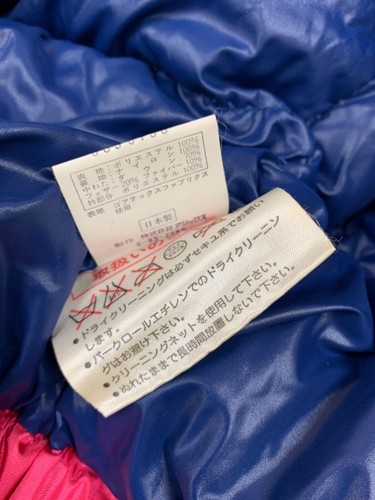 表地：ポリエステル100%
裏地：ナイロン100%
中わた：ダウン80%
フェザー20%
衿部分 ポリエステル100%
表地 ゴアテックスファブリクス
使用
日本製
製作 株式会社
取扱い
•ドライクリーニングは必ずセキユ系でお願い
します。
•パークロールエチレンでのドライクリーニン
グはお避け下さい。
•クリーニングネットを使用して下さい。
•ぬれたままで長時間放置しないで下さい。